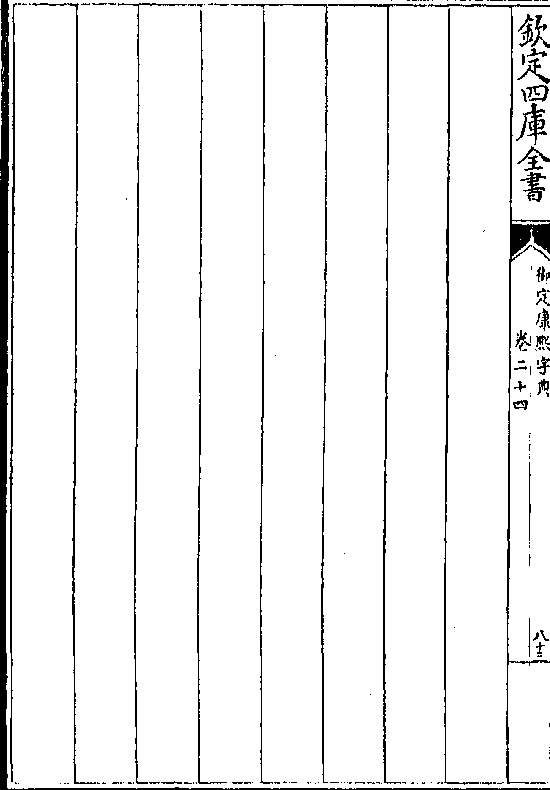 欽定四庫全書
御定康熙字典
卷二十四
八十三